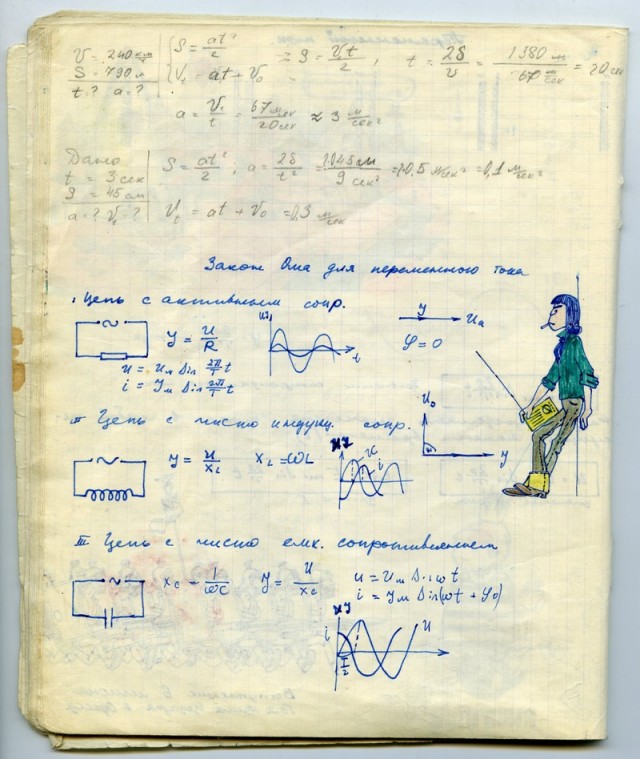 V = 240 км/ч
S = 790 м
t = ? a = ?
S = at²/2
Vt = at + V₀
≈ S = Vt t/2, t = 2S/v = 1380 м / 67 м/сек = 20 сек
a = Vt/t = 67 м/сек / 20 сек ≈ 3 м/сек²
Дано
t = 3 сек
S = 45 см
a = ? Vt = ?
S = at²/2; a = 2S/t² = 2·045 см / 9 сек² = 0,1 м/сек²
Vt = at + V₀ = 0,3 м/сек
Закон Ома для переменного тока
I Цепь с активным сопр.
У = U/R
u = Uм Sin 2π/T t
i = Ум Sin 2π/T t
t
У Uа
φ = 0
II Цепь с чисто индукц. сопр.
У = U/XL XL = ωL
u i
U₀
У
III Цепь с чисто емк. сопротивлением
Xc = 1/ωC У = U/Xc
u = Uм Sin ωt
i = Ум Sin(ωt + φ₀)
i
U